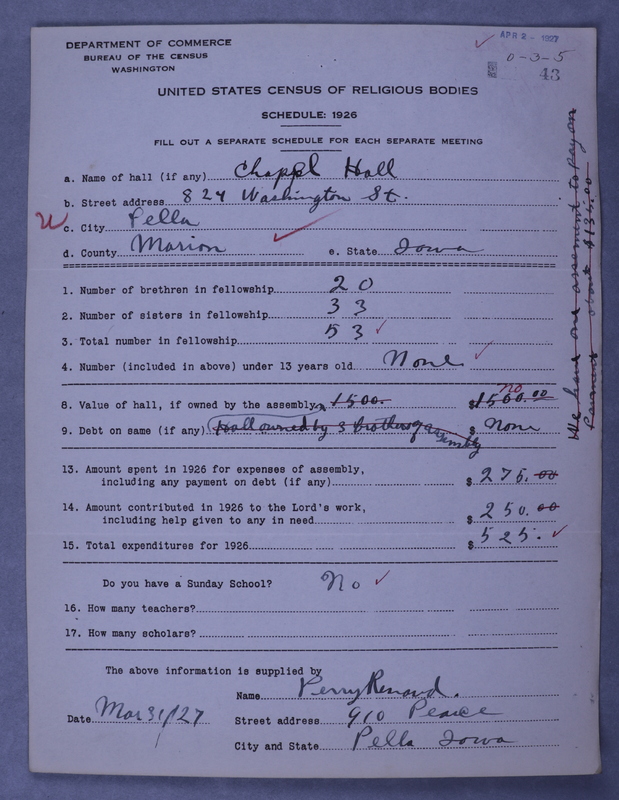 DEPARTMENT OF COMMERCE
BUREAU OF THE CENSUS
WASHINGTON
APR 2 - 1927
0-3-5
43
UNITED STATES CENSUS OF RELIGIOUS BODIES
SCHEDULE: 1926
FILL OUT A SEPARATE SCHEDULE FOR EACH SEPARATE MEETING
a. Name of hall (if any) Chappl Hall
b. Street address 824 Washington St.
c. City Pella
d. County Marion e. State Iowa
1. Number of brethren in fellowship 20
2. Number of sisters in fellowship 33
3. Total number in fellowship 53
4. Number (included in above) under 13 years old None
8. Value of hall, if owned by the assembly 1500. $ 1500.00 no
9. Debt on same (if any) Hall owned by 3 brothers of assembly $ None
13. Amount spent in 1926 for expenses of assembly,
including any payment on debt (if any) $ 275.00
14. Amount contributed in 1926 to the Lord's work,
including help given to any in need $ 250.00
15. Total expenditures for 1926 $ 525.
Do you have a Sunday School? No
16. How many teachers?
17. How many scholars?
The above information is supplied by
Name Perry Renaud.
Date Mar 31/27 Street address 910 Peace
City and State Pella Iowa
We have one assessment to pay on
about $135.00